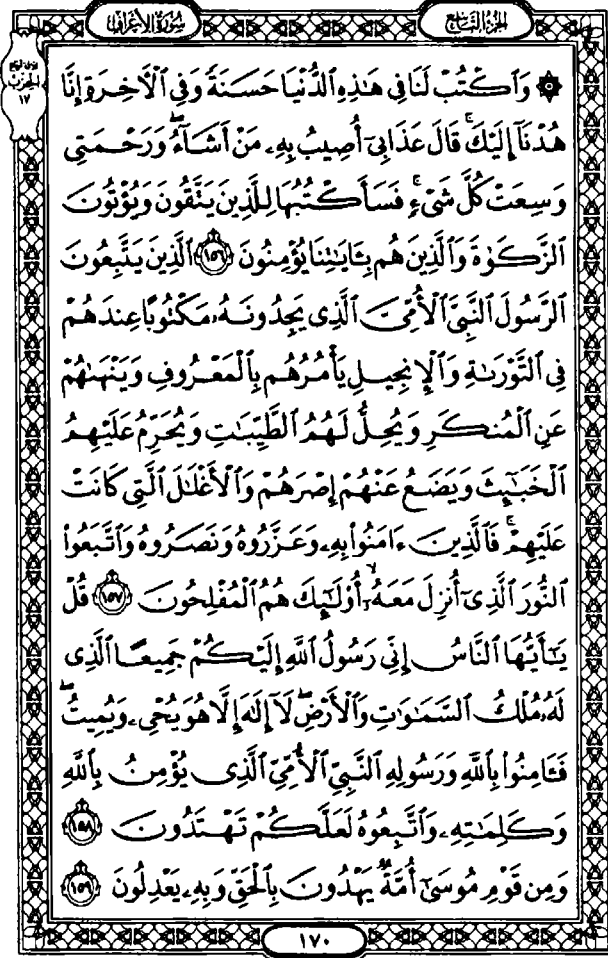 سُورَةُ الأَعْرَافِ
الجُزْءُ التَّاسِعُ
الحِزْبِ
١٧
۞ وَٱكْتُبْ لَنَا فِى هَـٰذِهِ ٱلدُّنْيَا حَسَنَةً وَفِى ٱلْأَخِرَةِ إِنَّا
هُدْنَآ إِلَيْكَ ۚ قَالَ عَذَابِىٓ أُصِيبُ بِهِۦ مَنْ أَشَآءُ ۖ وَرَحْمَتِى
وَسِعَتْ كُلَّ شَىْءٍ ۚ فَسَأَكْتُبُهَا لِلَّذِينَ يَتَّقُونَ وَيُؤْتُونَ
ٱلزَّكَوٰةَ وَٱلَّذِينَ هُم بِـَٔايَـٰتِنَا يُؤْمِنُونَ ١٥٦ ٱلَّذِينَ يَتَّبِعُونَ
ٱلرَّسُولَ ٱلنَّبِىَّ ٱلْأُمِّىَّ ٱلَّذِى يَجِدُونَهُۥ مَكْتُوبًا عِندَهُمْ
فِى ٱلتَّوْرَىٰةِ وَٱلْإِنجِيلِ يَأْمُرُهُم بِٱلْمَعْرُوفِ وَيَنْهَىٰهُمْ
عَنِ ٱلْمُنكَرِ وَيُحِلُّ لَهُمُ ٱلطَّيِّبَـٰتِ وَيُحَرِّمُ عَلَيْهِمُ
ٱلْخَبَـٰٓئِثَ وَيَضَعُ عَنْهُمْ إِصْرَهُمْ وَٱلْأَغْلَـٰلَ ٱلَّتِى كَانَتْ
عَلَيْهِمْ ۚ فَٱلَّذِينَ ءَامَنُوا۟ بِهِۦ وَعَزَّرُوهُ وَنَصَرُوهُ وَٱتَّبَعُوا۟
ٱلنُّورَ ٱلَّذِىٓ أُنزِلَ مَعَهُۥٓ ۙ أُو۟لَـٰٓئِكَ هُمُ ٱلْمُفْلِحُونَ ١٥٧ قُلْ
يَـٰٓأَيُّهَا ٱلنَّاسُ إِنِّى رَسُولُ ٱللَّهِ إِلَيْكُمْ جَمِيعًا ٱلَّذِى
لَهُۥ مُلْكُ ٱلسَّمَـٰوَٰتِ وَٱلْأَرْضِ ۖ لَآ إِلَـٰهَ إِلَّا هُوَ يُحْىِۦ وَيُمِيتُ ۖ
فَـَٔامِنُوا۟ بِٱللَّهِ وَرَسُولِهِ ٱلنَّبِىِّ ٱلْأُمِّىِّ ٱلَّذِى يُؤْمِنُ بِٱللَّهِ
وَكَلِمَـٰتِهِۦ وَٱتَّبِعُوهُ لَعَلَّكُمْ تَهْتَدُونَ ١٥٨
وَمِن قَوْمِ مُوسَىٰٓ أُمَّةٌ يَهْدُونَ بِٱلْحَقِّ وَبِهِۦ يَعْدِلُونَ ١٥٩
١٧٠